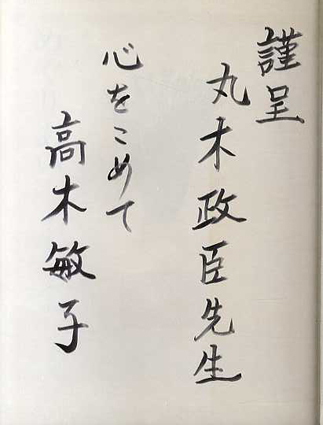 謹呈
丸木政臣先生
心をこめて
高木敏子